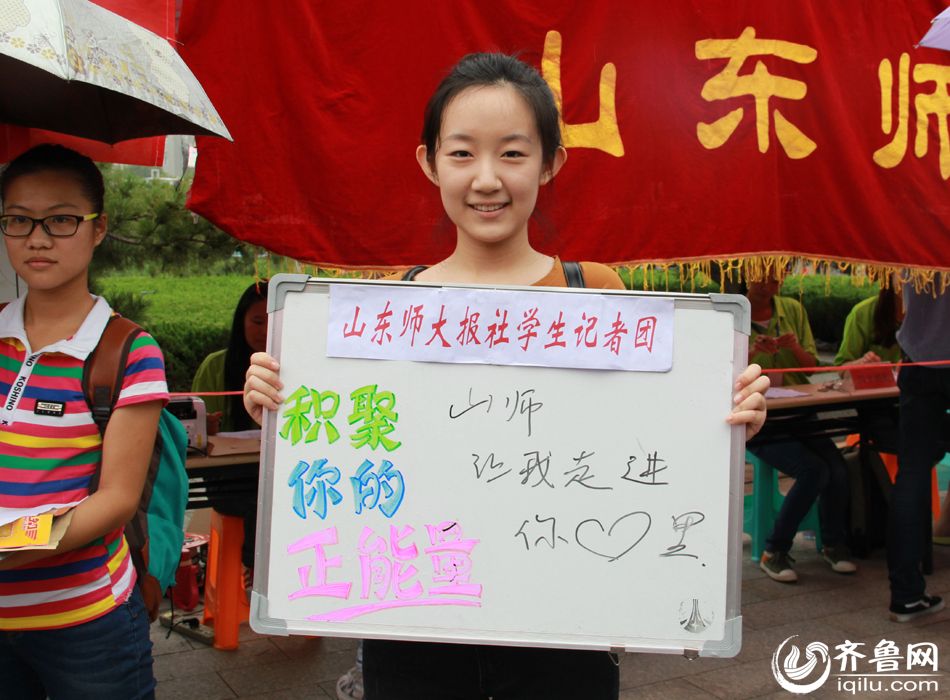 山东师
KOSHINO
山东师大报社学生记者团
积聚
你的
正能量
山师
让我走进
你♡里.
齐鲁网
iqilu.com